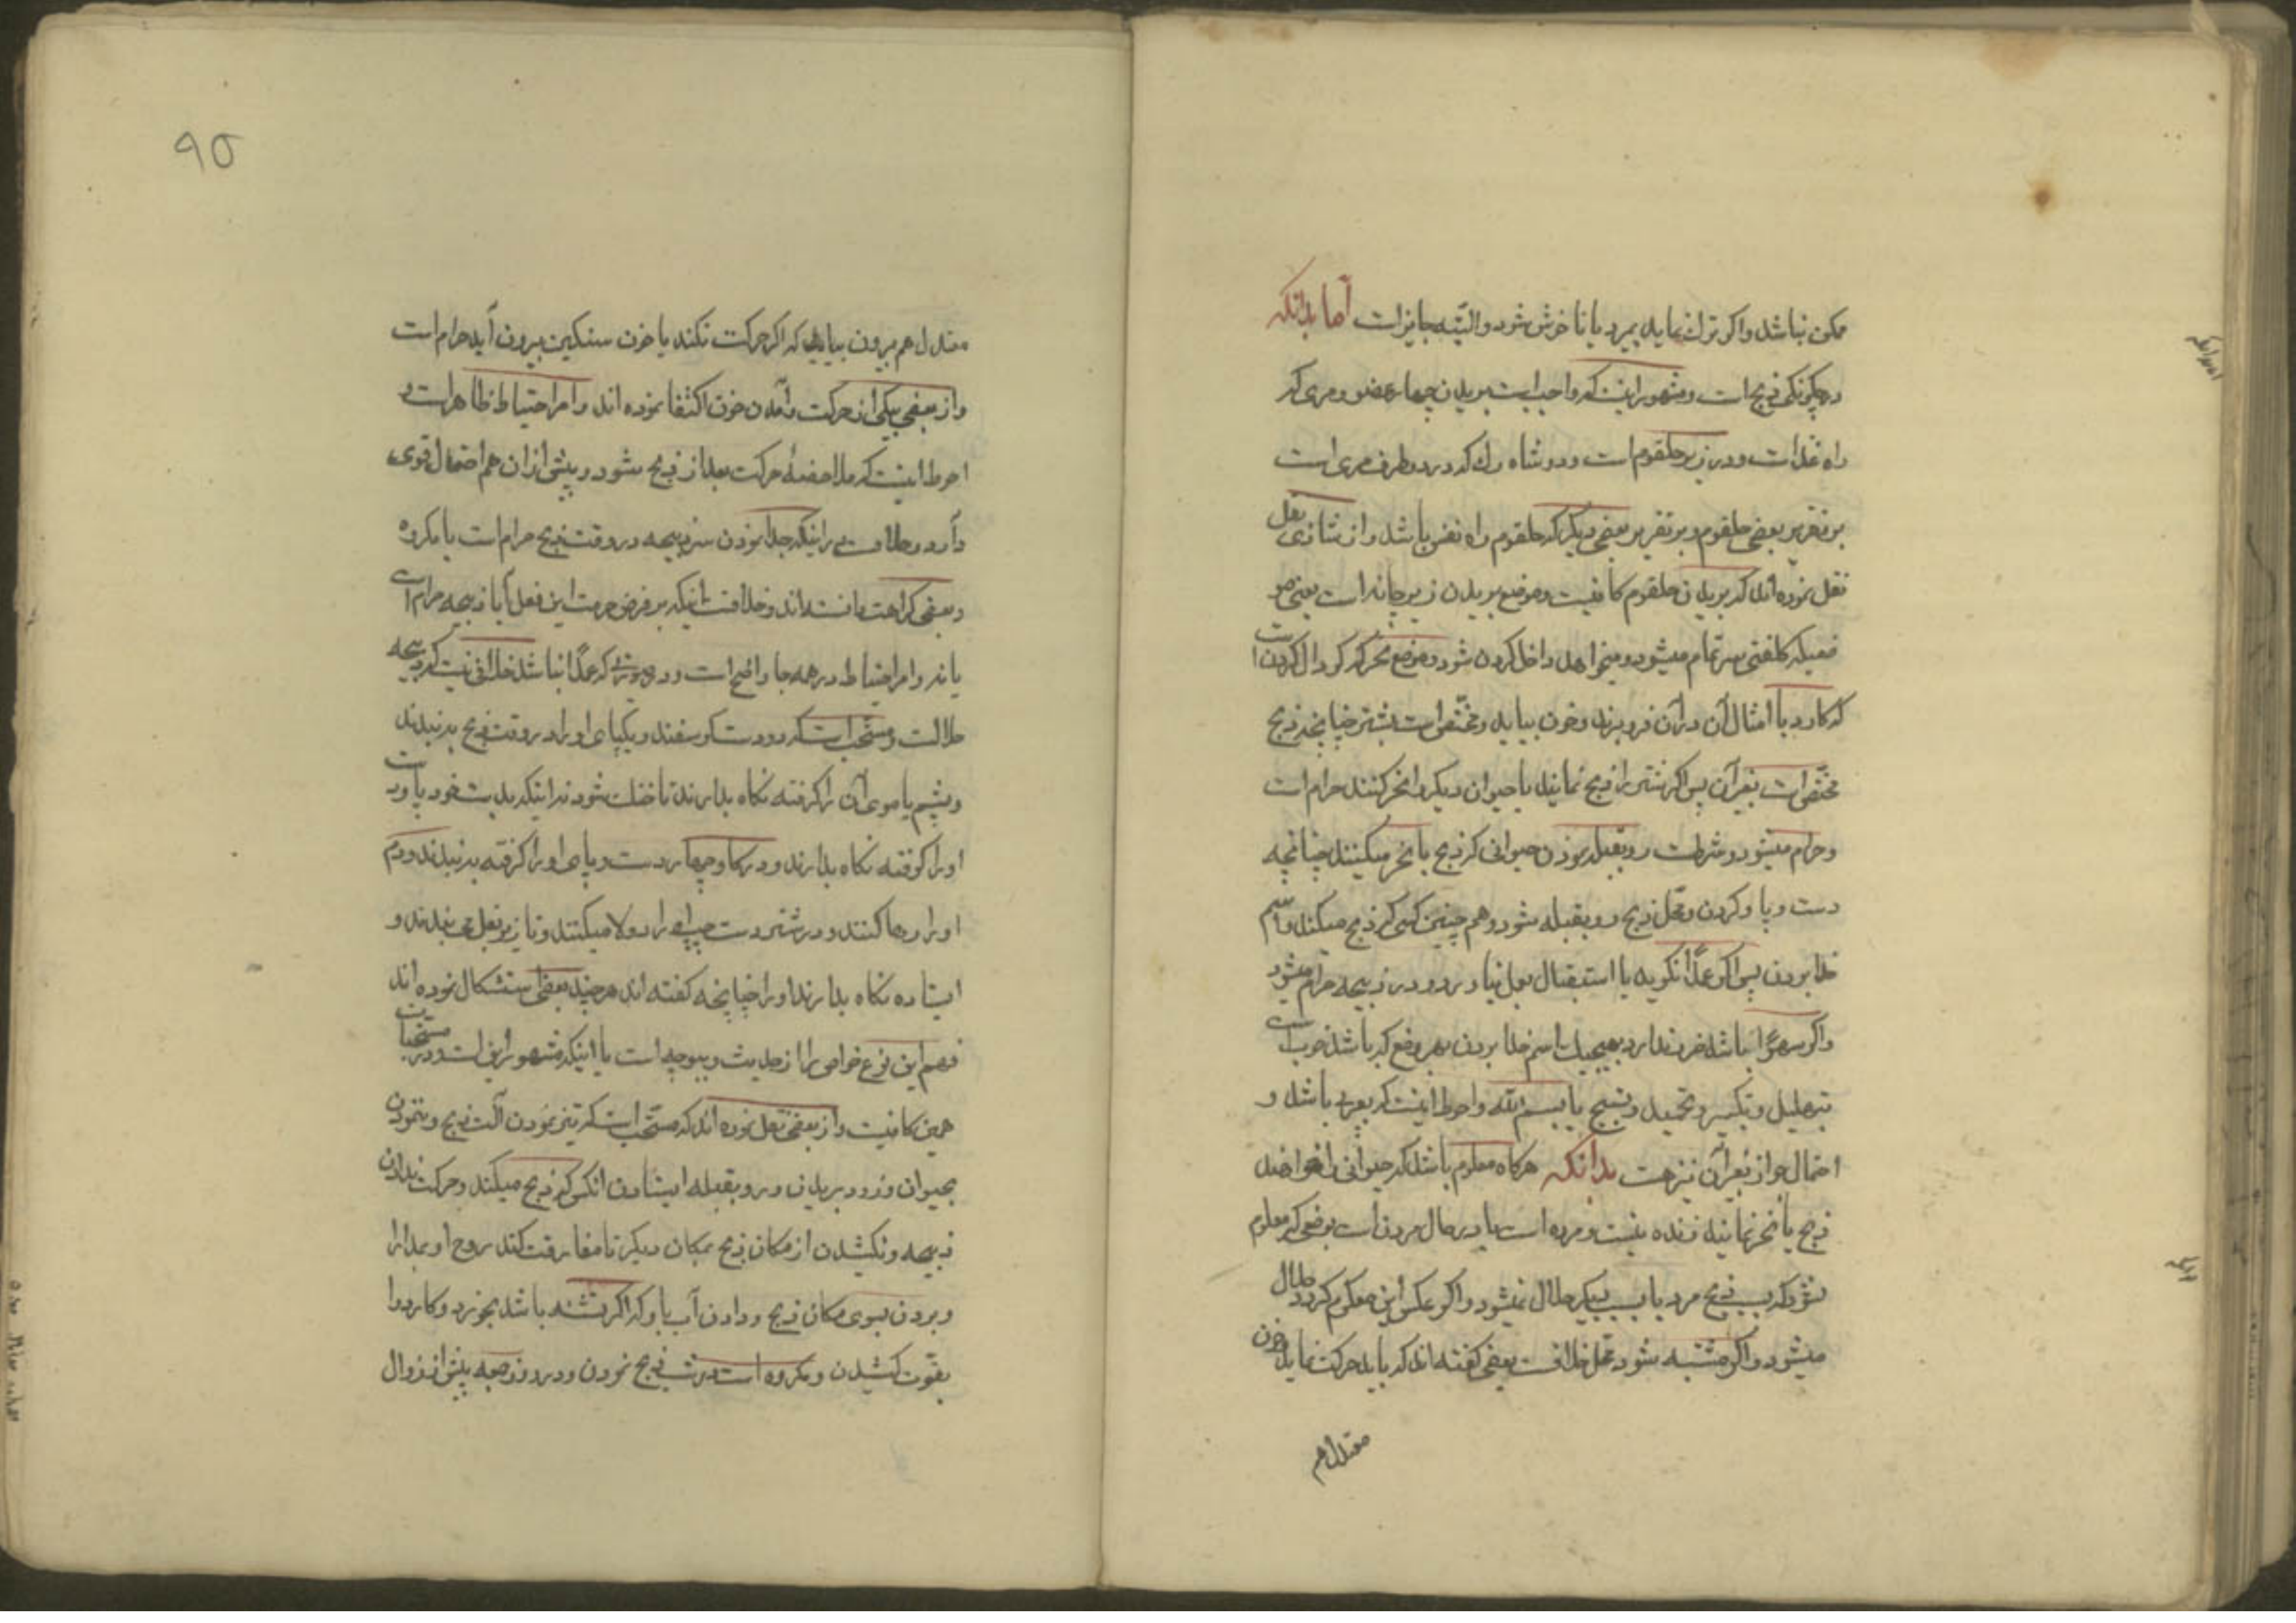 ممکن نباشد واکر ترک نماید بمیرد یا ناخوش شود والبته جایز است اما بدانکه
در چکونکی ذبح است ومشهور اینست که واجب است بریدن چهار عضو ومری که
راه غذا است ودر زیر حلقوم است ودو شاه رک که در دو طرف مری است
بر تقریر بعضی حلقوم وبر تقریر بعضی دیکر که حلقوم راه نفس باشد واز شاذی نقل
نقل نموده اند که بریدن حلقوم کافیست وموضع بریدن زیر چانه است یعنی مو
ضعیکه کلفتی سر تمام میشود ومیخواهد داخل کردن شود وموضع نحر که کودال کردن است
که کارد یا امثال آن در آن فرو برند وخون بیاید ومختص است بشتر چنانچه ذبح
مختص است بغیر آن پس اکر شتر را ذبح نمایند یا حیوان دیکر را نحر کنند حرام است
وحرام میشود وشرطست رو بقبله نمودن حیوانی که ذبح یا نحر میکنند چنانچه
دست وپا وکردن ومحل ذبح رو بقبله شود وهم چنین کسی که ذبح میکند واسم
خدا بردن پس اکر عمدا نکوید یا استقبال بعمل نیاورد ذبیحه حرام میشود
واکر سهوا باشد ضرر ندارد بهیچیک اسم خدا بردن بهر وضع که باشد خوب است
بتهلیل وتکبیر وتحمید وتسبیح یا بسم الله واحوط اینست که بعربی باشد و
احتمال جواز بغیر آن نیز هست بدانکه هرکاه معلوم باشد که حیوانی را که خواهند
ذبح یا نحر نمایند زنده نیست ومرده است یا در حال مردن است بوضعی که معلوم
نشود که بسبب ذبح مرد یا بسبب دیکر حلال نمیشود واکر عکس این معلوم کردد حلال
میشود واکر مشتبه شود محل خلافست بعضی کفته اند که باید حرکت نماید وخون
معتدل هم
۹۵
معتدل هم بیرون بیاید که اکر حرکت نکند یا خون سنکین بیرون آید حرام است
واز بعضی بیکی از حرکت وآمدن خون اکتفا نموده اند وامر احتیاط ظاهر است و
احوط اینست که ملاحضهٔ حرکت بعد از ذبح بشود وپیش از ان هم احتمال قوی
دارد وخلافست در اینکه جدا نمودن سر ذبیحه در وقت ذبح حرام است یا مکروه
وبعضی کراهت دانسته اند وخلافست در اینکه بر فرض حرمت این فعل آیا ذبیحه حرام است
یا نه وامر احتیاط در همه جا واضح است ودر صورتی که عمدا نباشد خلافی نیست که ذبیحه
حلالست ومستحب است که دو دست کوسفند ویکپای او را در وقت ذبح به بندند
وپشم یا موی آن را کرفته نکاه بدارند تا خنک شود نه اینکه بدست خود یا وی
او را کوفته نکاه بدارند ودر کاو چهار دست وپای او را کرفته به بندند ودم
او را رها کنند ودر شتر دست چپ او را دولا میکنند وتا زیر بغل می بندند و
ایستاده نکاه بدارند او را چنانچه کفته اند هر چند بعضی استشکال نموده اند
فهم این نوع خواص را از حدیث وبیوجه است با اینکه مشهور این است ودر مستحبات
همین کافیست واز بعضی نقل نموده اند که مستحب است که تیز نمودن آلت ذبح وننمودن
بحیوان وزود بریدن ورو بقبله ایستادن انکس که ذبح میکند وحرکت ندادن
ذبیحه ونکشیدن از مکان ذبح بمکان دیکر تا مفارقت کند روح او بمدارا
وبردن بسوی مکان ذبح ودادن آب باو که اکر تشنه باشد بخورد وکارد را
بقوت کشیدن ومکروه است در شب ذبح نمودن ودر روز جمعه پیش از زوال